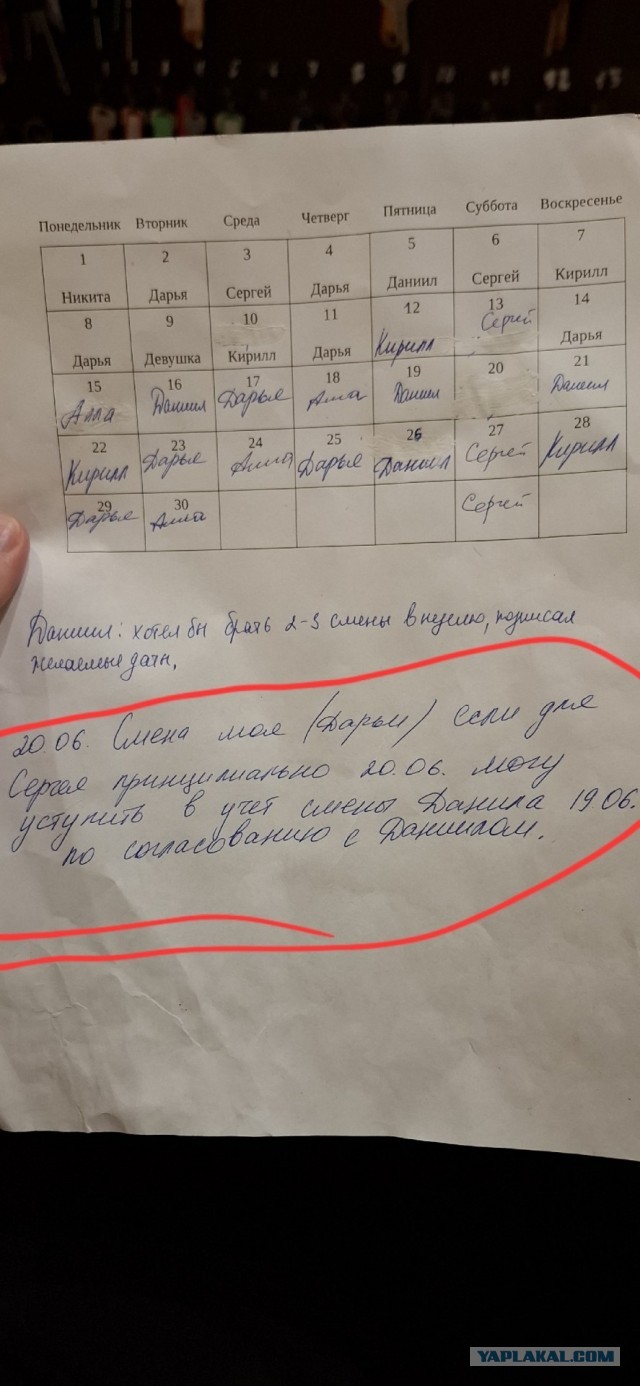 Понедельник Вторник Среда Четверг Пятница Суббота Воскресенье
1 2 3 4 5 6 7
Никита Дарья Сергей Дарья Даниил Сергей Кирилл
8 9 10 11 12 13 14
Дарья Девушка Кирилл Дарья Кирилл Сергей Дарья
15 16 17 18 19 20 21
Алла Даниил Дарья Алла Даниил Даниил
22 23 24 25 26 27 28
Кирилл Дарья Алла Дарья Даниил Сергей Кирилл
29 30
Дарья Алла Сергей
Даниил: хотел бы брать 2-3 смены в неделю, подписал
желаемые даты.
20.06. Смена моя (Дарьи) если для
Сергея принципиально 20.06. могу
уступить в учет смены Данила 19.06.
по согласованию с Даниилом.
YAPLAKAL.COM